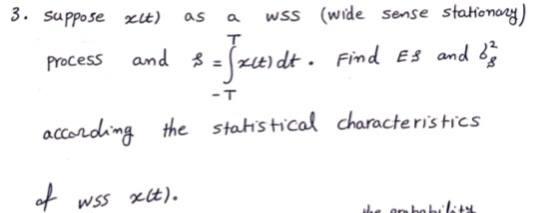 3. Suppose x(t) as a WSS (wide sense stationary)
process and s = ∫_{-T}^{T} x(t) dt. Find Es and δ_s^2
according the statistical characteristics
of WSS x(t).
the probability